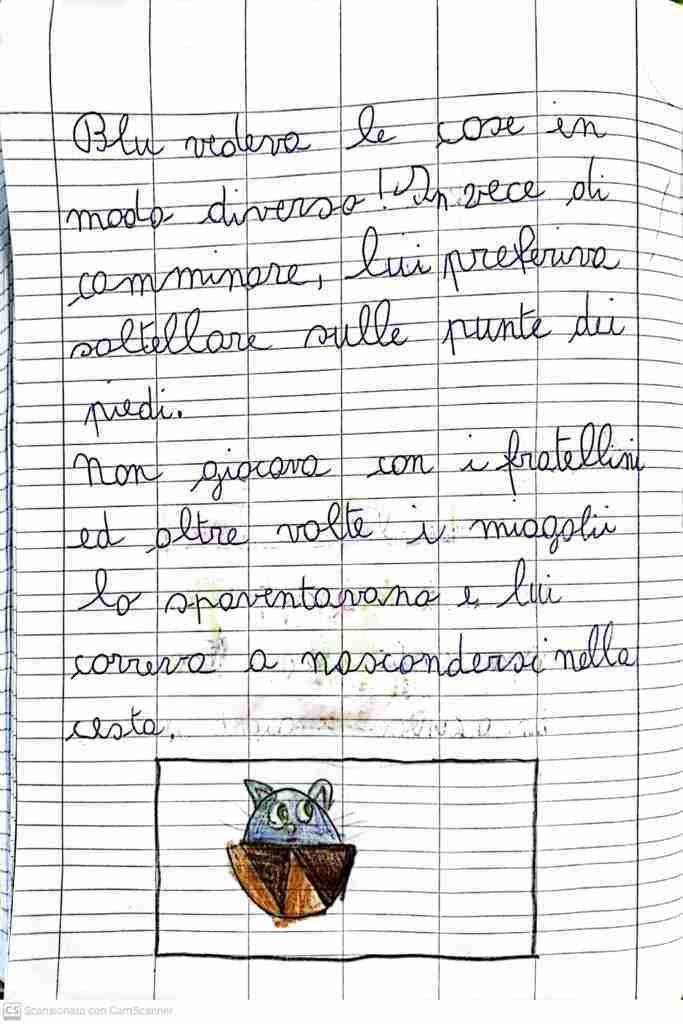 Blu vedeva le cose in
modo diverso! In vece di
camminare, lui preferiva
saltellare sulle punte dei
piedi.
Non giocava con i fratellini
ed altre volte i miagolii
lo spaventavano e lui
correva a nascondersi nella
cesta.
CS Scansionato con CamScanner